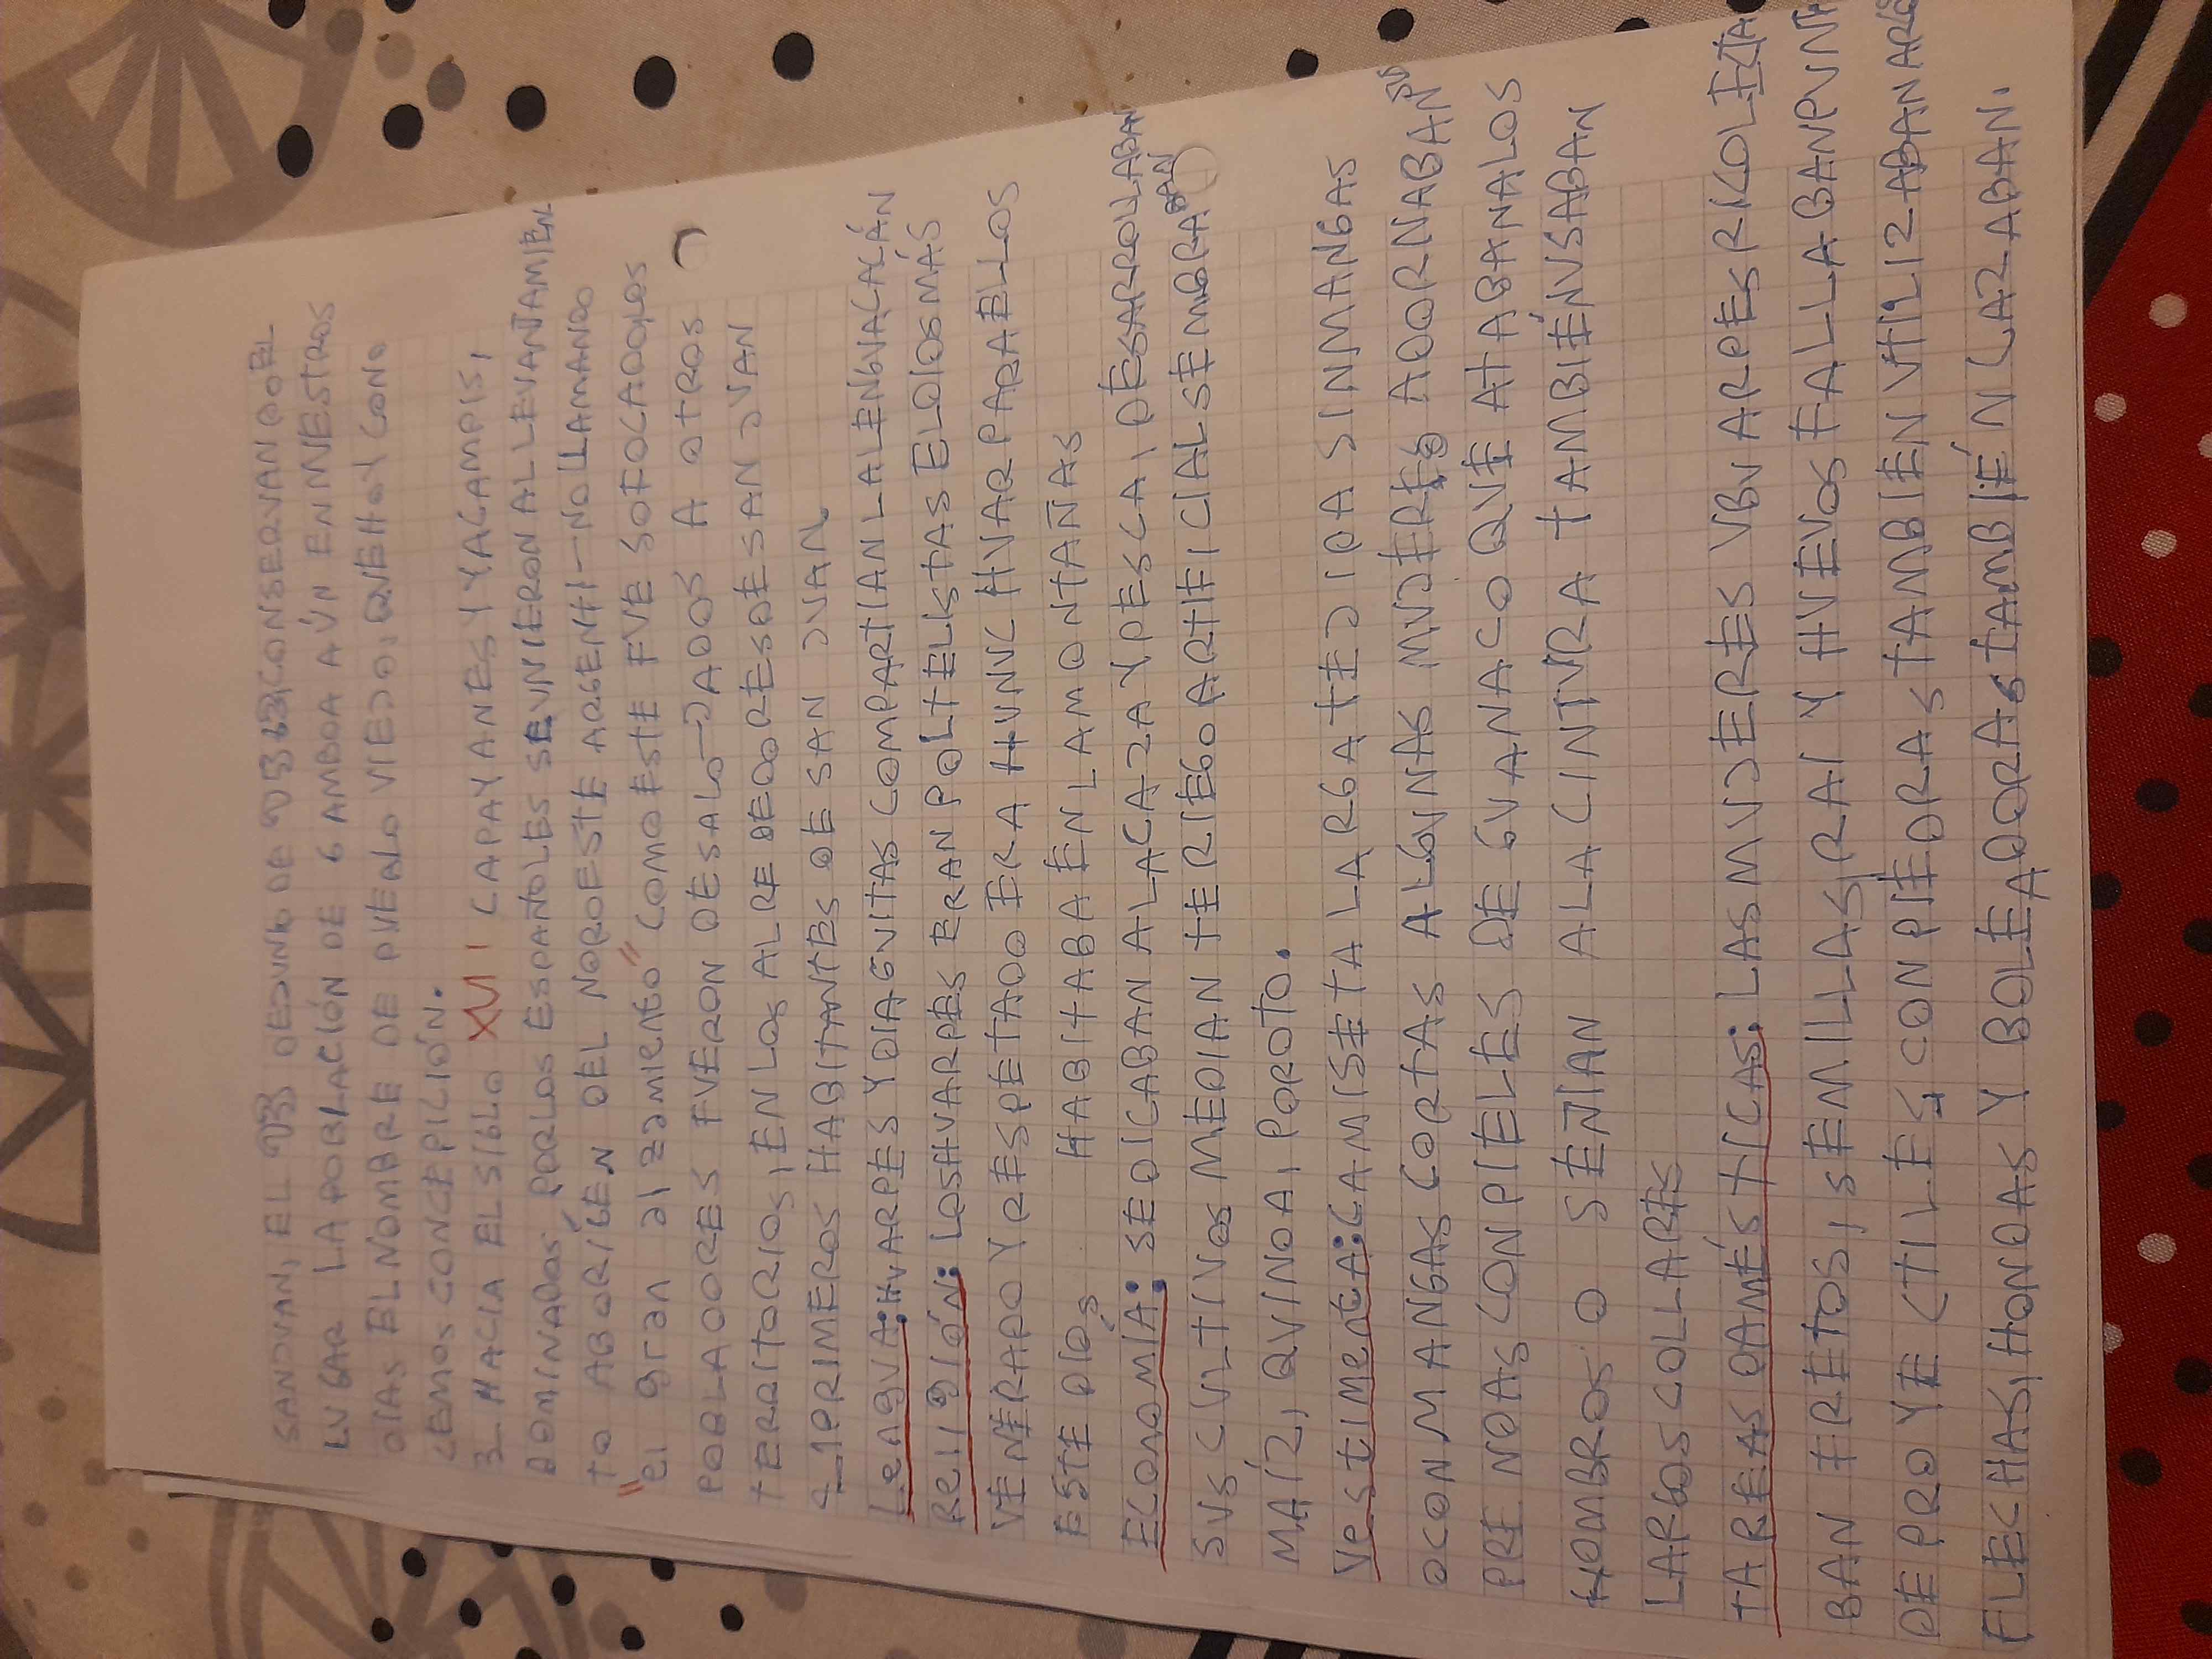 SANJUAN, EL DE JUNIO DE CONSERVANDO EL
LUGAR LA POBLACIÓN DE GAMBOA AÚN EN NUESTROS
DIAS EL NOMBRE DE PUEBLO VIEJO, QUE HOY CONO
CEMOS CONCEPCIÓN.
3_HACIA EL SIGLO XVII CAPAYANES Y YACAMPIS,
DOMINADOS, POR LOS ESPAÑOLES SE UNIERON AL LEVANTAMIEN
TO ABORIGEN DEL NOROESTE ARGENTI-NO LLAMANDO
"el gran alzamiento" COMO ESTE FUE SOFOCADO, LOS
POBLADORES FUERON DESALO-JADOS A OTROS
TERRITORIOS, EN LOS ALREDEDORES DE SAN JUAN
PRIMEROS HABITANTES DE SAN JUAN.
Lengua: HUARPES Y DIAGUITAS COMPARTIAN LA LENGUA CACÁN
Religión: LOS HUARPES ERAN POLTEÍSTAS EL DIOS MÁS
VENERADO Y RESPETADO ERA HUNUC HUAR PARA ELLOS
ESTE DIOS HABITABA EN LA MONTAÑAS
ECONOMÍA: SE DICABAN A LA CAZA Y PESCA, DESARROLABAN
SUS CULTIVOS MEDIAN TE RIEGO ARTIFICIAL SEMBRABAN
MAÍZ, QUINOA, POROTO.
Vestimenta: CAMISETA LARGA TEJIDA SIN MANGAS
O CON MANGAS CORTAS ALGUNAS MUJERES ADORNABAN SU
PRENDAS CON PIELES DE GUANACO QUE ATABAN A LOS
HOMBROS O SEÑIAN A LA CINTURA TAMBIÉN USABAN
LARGOS COLLARES
TAREAS DAMÉSTICAS: LAS MUJERES UBUARPES RECOLECTA
BAN FRETOS, SEMILLAS, RAI Y HUEVOS FALLABAN PUNTA
DE PROYECTILES CON PIEDRAS TAMBIEN UTILIZABAN ARCOS
FLECHAS, HONDAS Y BOLEADORAS TAMBIÉN CAZABAN.